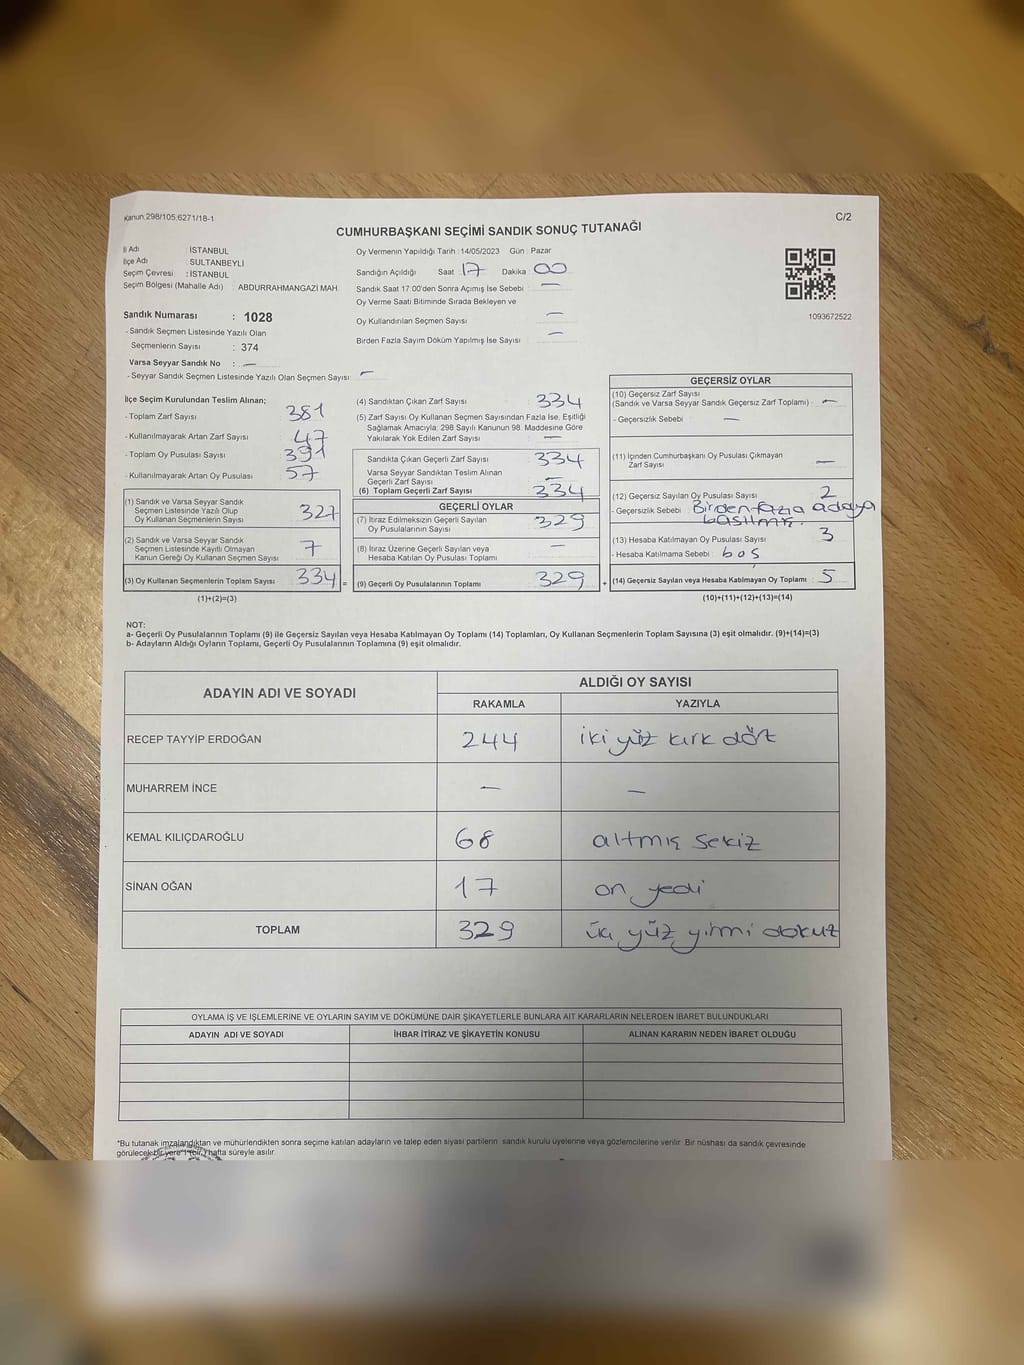 Kanun:298/105,6271/18-1
C/2
CUMHURBAŞKANI SEÇİMİ SANDIK SONUÇ TUTANAĞI
İl Adı : İSTANBUL
İlçe Adı : SULTANBEYLİ
Seçim Çevresi : İSTANBUL
Seçim Bölgesi (Mahalle Adı) : ABDURRAHMANGAZİ MAH.
Sandık Numarası : 1028
- Sandık Seçmen Listesinde Yazılı Olan
Seçmenlerin Sayısı : 374
Varsa Seyyar Sandık No : —
- Seyyar Sandık Seçmen Listesinde Yazılı Olan Seçmen Sayısı: —
Oy Vermenin Yapıldığı Tarih :14/05/2023 Gün : Pazar
Sandığın Açıldığı Saat : 17 Dakika : 00
Sandık Saat 17:00'den Sonra Açılmış İse Sebebi : —
Oy Verme Saati Bitiminde Sırada Bekleyen ve
Oy Kullandırılan Seçmen Sayısı —
Birden Fazla Sayım Döküm Yapılmış İse Sayısı : —
1093672522
İlçe Seçim Kurulundan Teslim Alınan;
- Toplam Zarf Sayısı 381
- Kullanılmayarak Artan Zarf Sayısı 47
- Toplam Oy Pusulası Sayısı 391
- Kullanılmayarak Artan Oy Pusulası 57
(1) Sandık ve Varsa Seyyar Sandık
Seçmen Listesinde Yazılı Olup
Oy Kullanan Seçmenlerin Sayısı 327
(2) Sandık ve Varsa Seyyar Sandık
Seçmen Listesinde Kayıtlı Olmayan
Kanun Gereği Oy Kullanan Seçmen Sayısı 7
(3) Oy Kullanan Seçmenlerin Toplam Sayısı 334 =
(1)+(2)=(3)
(4) Sandıktan Çıkan Zarf Sayısı 334
(5) Zarf Sayısı Oy Kullanan Seçmen Sayısından Fazla İse, Eşitliği
Sağlamak Amacıyla; 298 Sayılı Kanunun 98. Maddesine Göre
Yakılarak Yok Edilen Zarf Sayısı —
Sandıkta Çıkan Geçerli Zarf Sayısı 334
Varsa Seyyar Sandıktan Teslim Alınan
Geçerli Zarf Sayısı —
(6) Toplam Geçerli Zarf Sayısı 334
GEÇERLİ OYLAR
(7) İtiraz Edilmeksizin Geçerli Sayılan
Oy Pusulalarının Sayısı 329
(8) İtiraz Üzerine Geçerli Sayılan veya
Hesaba Katılan Oy Pusulası Toplamı —
(9) Geçerli Oy Pusulalarının Toplamı 329 +
GEÇERSİZ OYLAR
(10) Geçersiz Zarf Sayısı
(Sandık ve Varsa Seyyar Sandık Geçersiz Zarf Toplamı) : —
- Geçersizlik Sebebi : —
(11) İçinden Cumhurbaşkanı Oy Pusulası Çıkmayan
Zarf Sayısı —
(12) Geçersiz Sayılan Oy Pusulası Sayısı : 2
- Geçersizlik Sebebi : Birden fazla adaya
basılmış.
(13) Hesaba Katılmayan Oy Pusulası Sayısı : 3
- Hesaba Katılmama Sebebi : boş
(14) Geçersiz Sayılan veya Hesaba Katılmayan Oy Toplamı : 5
(10)+(11)+(12)+(13)=(14)
NOT:
a- Geçerli Oy Pusulalarının Toplamı (9) ile Geçersiz Sayılan veya Hesaba Katılmayan Oy Toplamı (14) Toplamları, Oy Kullanan Seçmenlerin Toplam Sayısına (3) eşit olmalıdır. (9)+(14)=(3)
b- Adayların Aldığı Oyların Toplamı, Geçerli Oy Pusulalarının Toplamına (9) eşit olmalıdır.
ADAYIN ADI VE SOYADI ALDIĞI OY SAYISI
RAKAMLA YAZIYLA
RECEP TAYYİP ERDOĞAN 244 iki yüz kırk dört
MUHARREM İNCE — —
KEMAL KILIÇDAROĞLU 68 altmış sekiz
SİNAN OĞAN 17 on yedi
TOPLAM 329 üç yüz yirmi dokuz
OYLAMA İŞ VE İŞLEMLERİNE VE OYLARIN SAYIM VE DÖKÜMÜNE DAİR ŞİKAYETLERLE BUNLARA AİT KARARLARIN NELERDEN İBARET BULUNDUKLARI
ADAYIN ADI VE SOYADI İHBAR İTİRAZ VE ŞİKAYETİN KONUSU ALINAN KARARIN NEDEN İBARET OLDUĞU
*Bu tutanak imzalandıktan ve mühürlendikten sonra seçime katılan adayların ve talep eden siyasi partilerin sandık kurulu üyelerine veya gözlemcilerine verilir. Bir nüshası da sandık çevresinde
görülecek bir yere 1 (bir) hafta süreyle asılır.